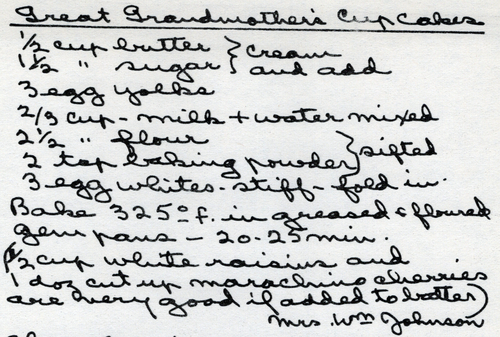 Great Grandmother's Cup Cakes
1/2 cup butter } cream
1 1/2 " sugar } and add
3 egg yolks
2/3 cup - milk + water mixed
2 1/2 " flour
2 tsp baking powder } sifted
3 egg whites - stiff - fold in.
Bake 325° f. in greased & floured
gem pans - 20-25 min.
(1/2 cup white raisins and
1 doz cut up marachino cherries
are very good if added to batter)
Mrs. Wm Johnson